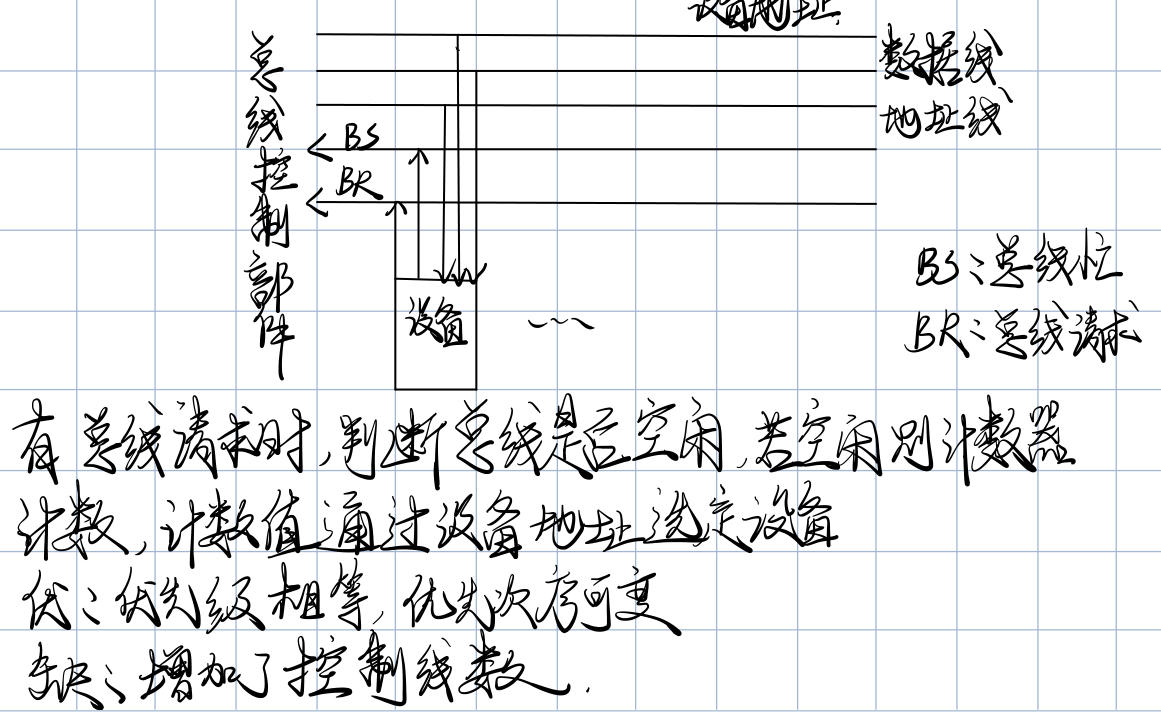 设备地址
数据线
地址线
总线控制部件
BS
BR
设备
BS:总线忙
BR:总线请求
有总线请求时,判断总线是否空闲,若空闲则计数器
计数,计数值通过设备地址选定设备
优:优先级相等,优先次序可变
缺:增加了控制线数.